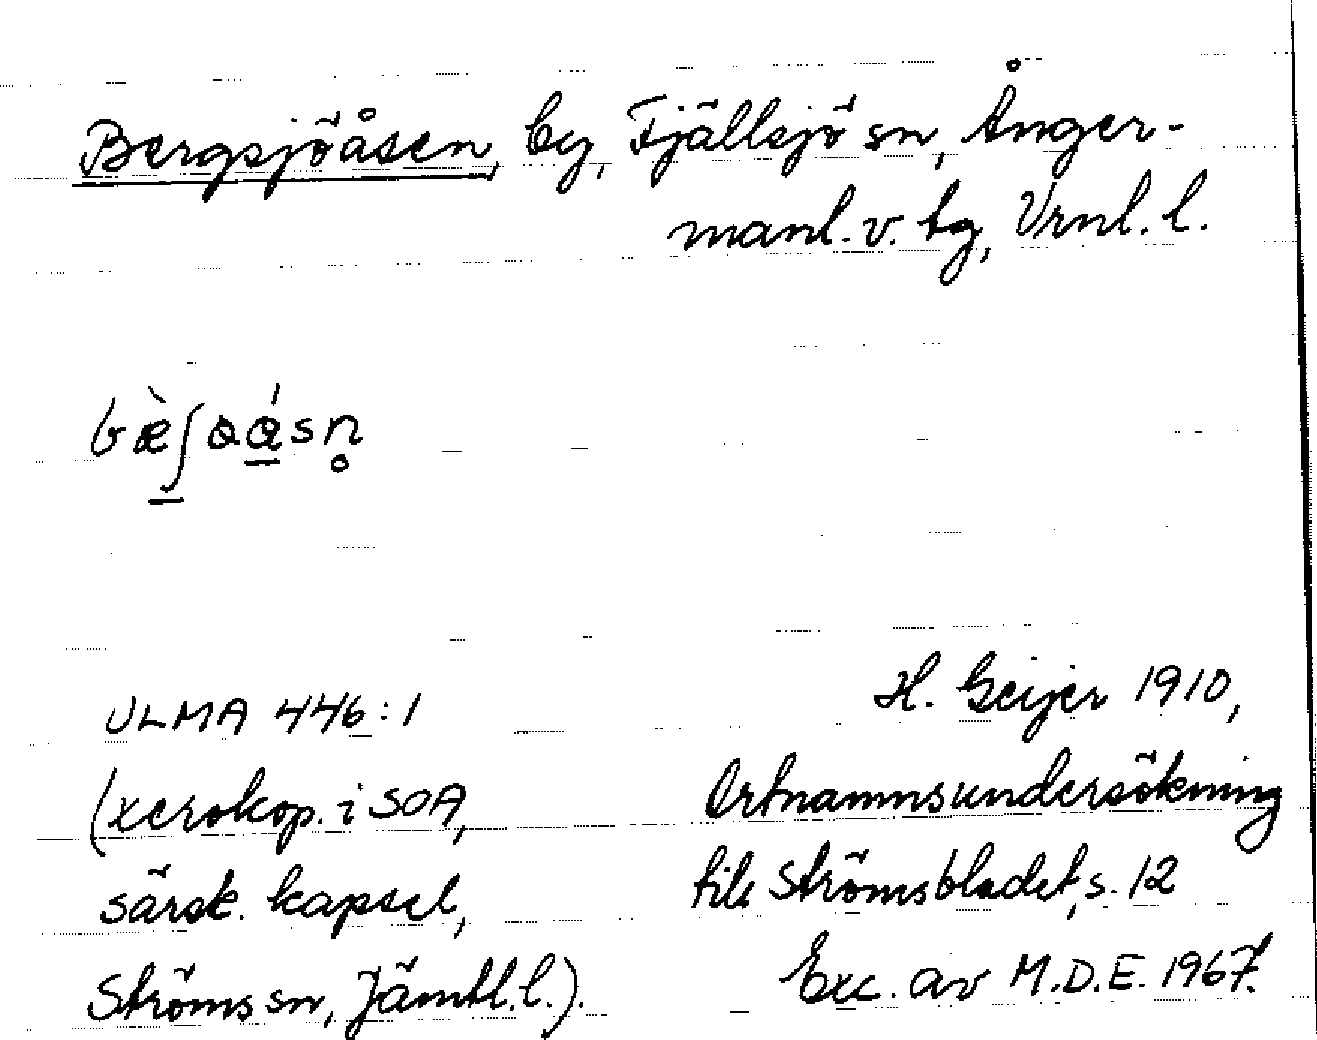 Bergsjöåsen, by, Fjällsjö sn, Ånger-
manl. v. tg, Vrnl. l.
ULMA 446:1
(xerokop. i SOA,
särsk. kapsel,
Ströms sn, Jämtl. l.).
H. Geijer 1910,
Ortnamnsundersökning
till Strömsbladet, s. 12
Exc. av M.D.E. 1967.